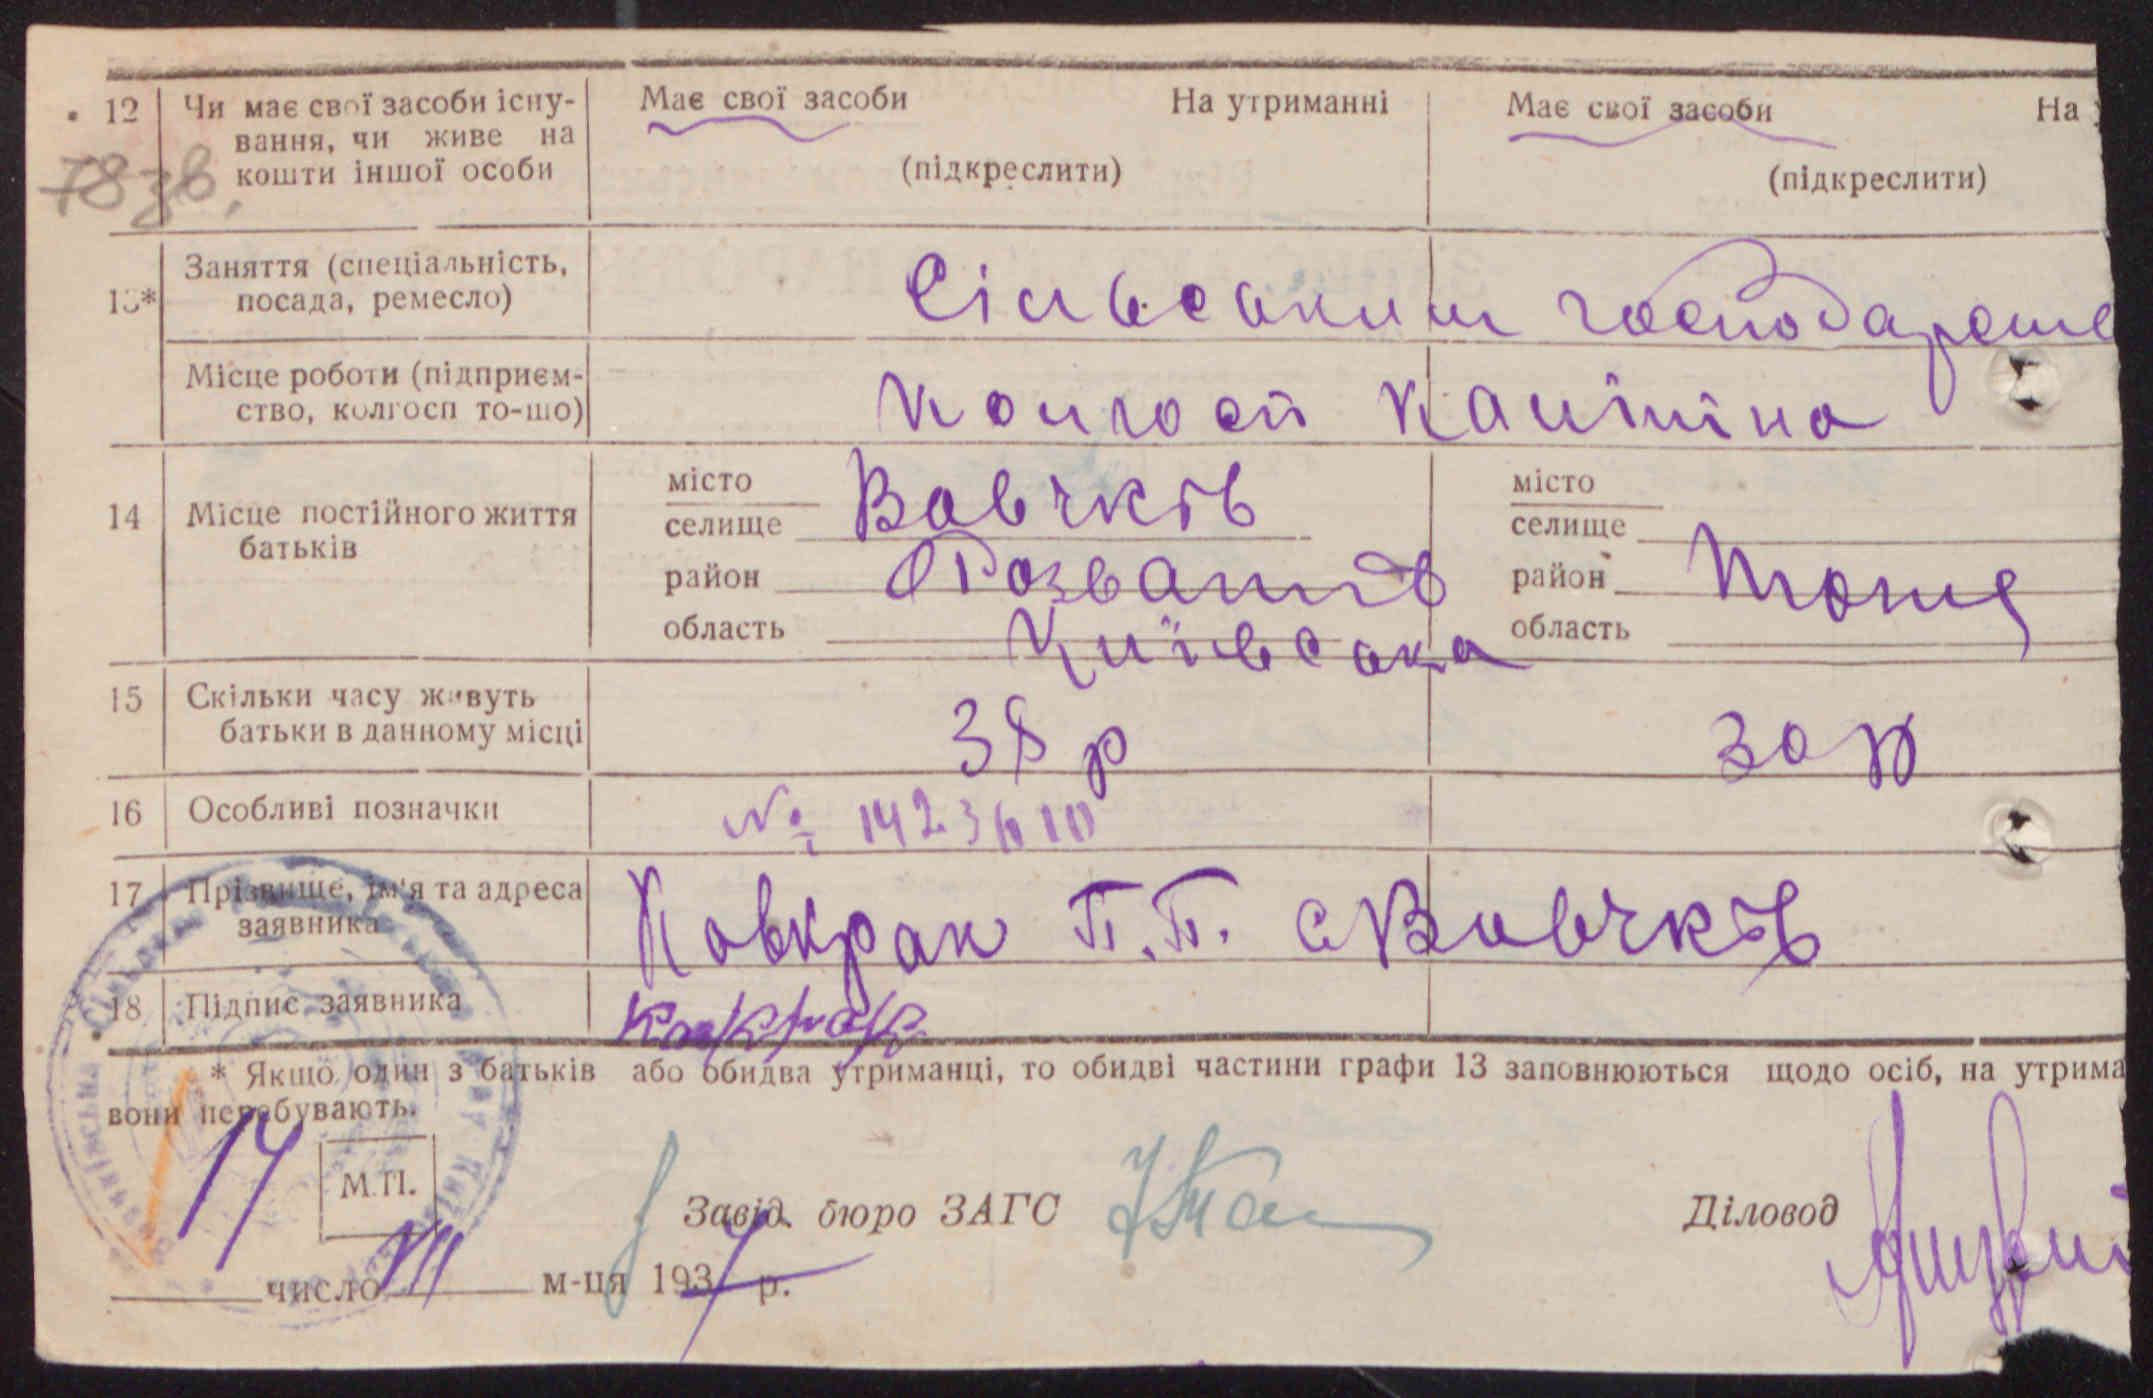 12 Чи має свої засоби існу- Має свої засоби На утриманні Має свої засоби На
вання, чи живе на
кошти іншої особи (підкреслити) (підкреслити)
78 зв,
13* Заняття (спеціальність,
посада, ремесло) Сільським господарств
Місце роботи (підприєм-
ство, колгосп то-що) Колгосп Калініна
14 Місце постійного життя
батьків
місто місто
селище Вовчків селище
район Розважів район Тоже
область Київська область
15 Скільки часу живуть
батьки в данному місці 38 р 30 р
16 Особливі позначки № 1423610
17 Прізвище, ім'я та адреса
заявника Ковкрак П.П. с Вовчків
18 Підпис заявника
* Якщо один з батьків або обидва утриманці, то обидві частини графи 13 заповнюються щодо осіб, на утрима
вони перебувають.
М.П.
Завід. бюро ЗАГС Діловод
14 число VII м-ця 1937 р.